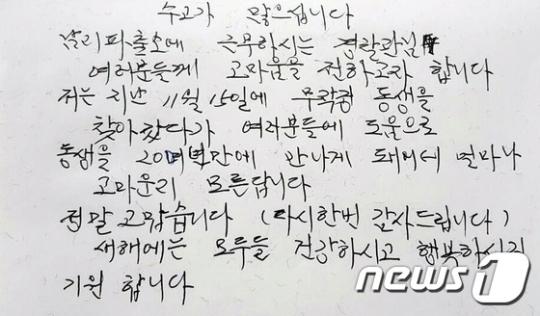 수고가 많으십니다
날리파출소에 근무하시는 경찰관님
여러분들께 고마움을 전하고자 합니다
저는 지난 11월 15일에 무작정 동생을
찾아갔다가 여러분들에 도움으로
동생을 20여년만에 만나게 돼어서 얼마나
고마운리 모른답니다
정말 고맙습니다 (다시한번 감사드립니다)
새해에는 모두들 건강하시고 행복하시길
기원 합니다
news1